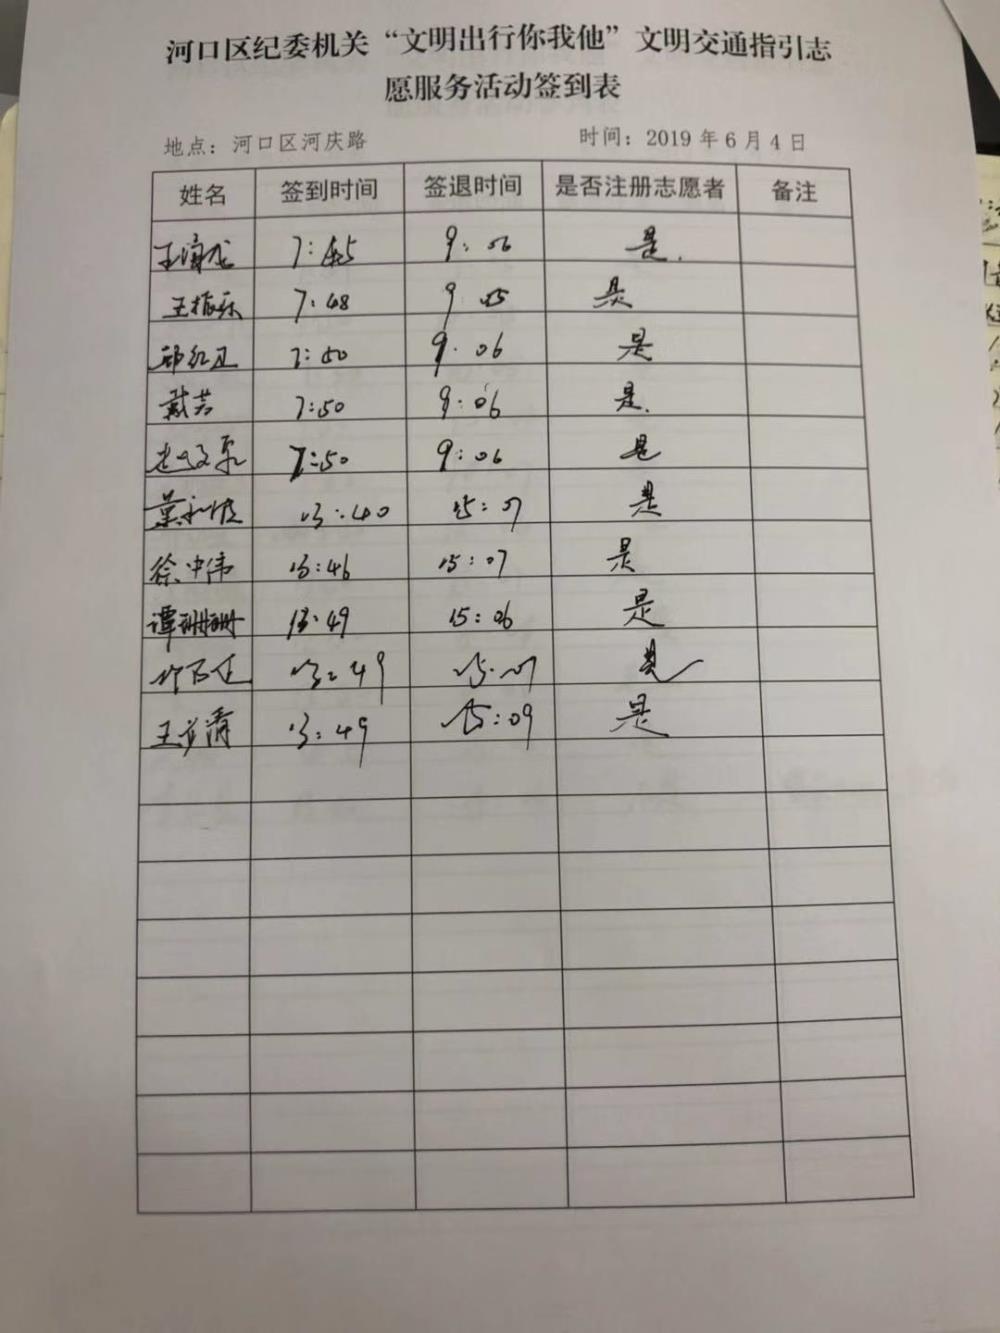 河口区纪委机关“文明出行你我他”文明交通指引志
愿服务活动签到表
地点：河口区河庆路 时间：2019年6月4日
姓名 签到时间 签退时间 是否注册志愿者 备注
7:45 9:06 是.
王振乐 7:48 9 05 是
邱红卫 7:50 9.06 是
戴芸 7:50 9:06 是.
7:50 9:06 是
13:40 15:07 是
徐中伟 13:46 15:07 是
谭珊珊 13:49 15:06 是
13:49 15:07 是
王 清 13:49 15:09 是